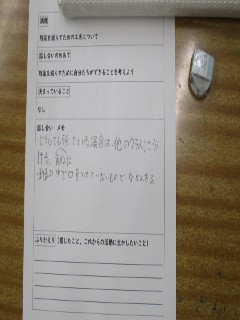 議題
残菜を減らすための工夫について
話し合いのめあて
残菜を減らすために自分たちができることを考えよう
決まっていること
なし
話し合い メモ
どうしても残っている場合は、他のクラスで分
ける。
ふりかえり(感じたこと、これからの活動に生かしたいこと)